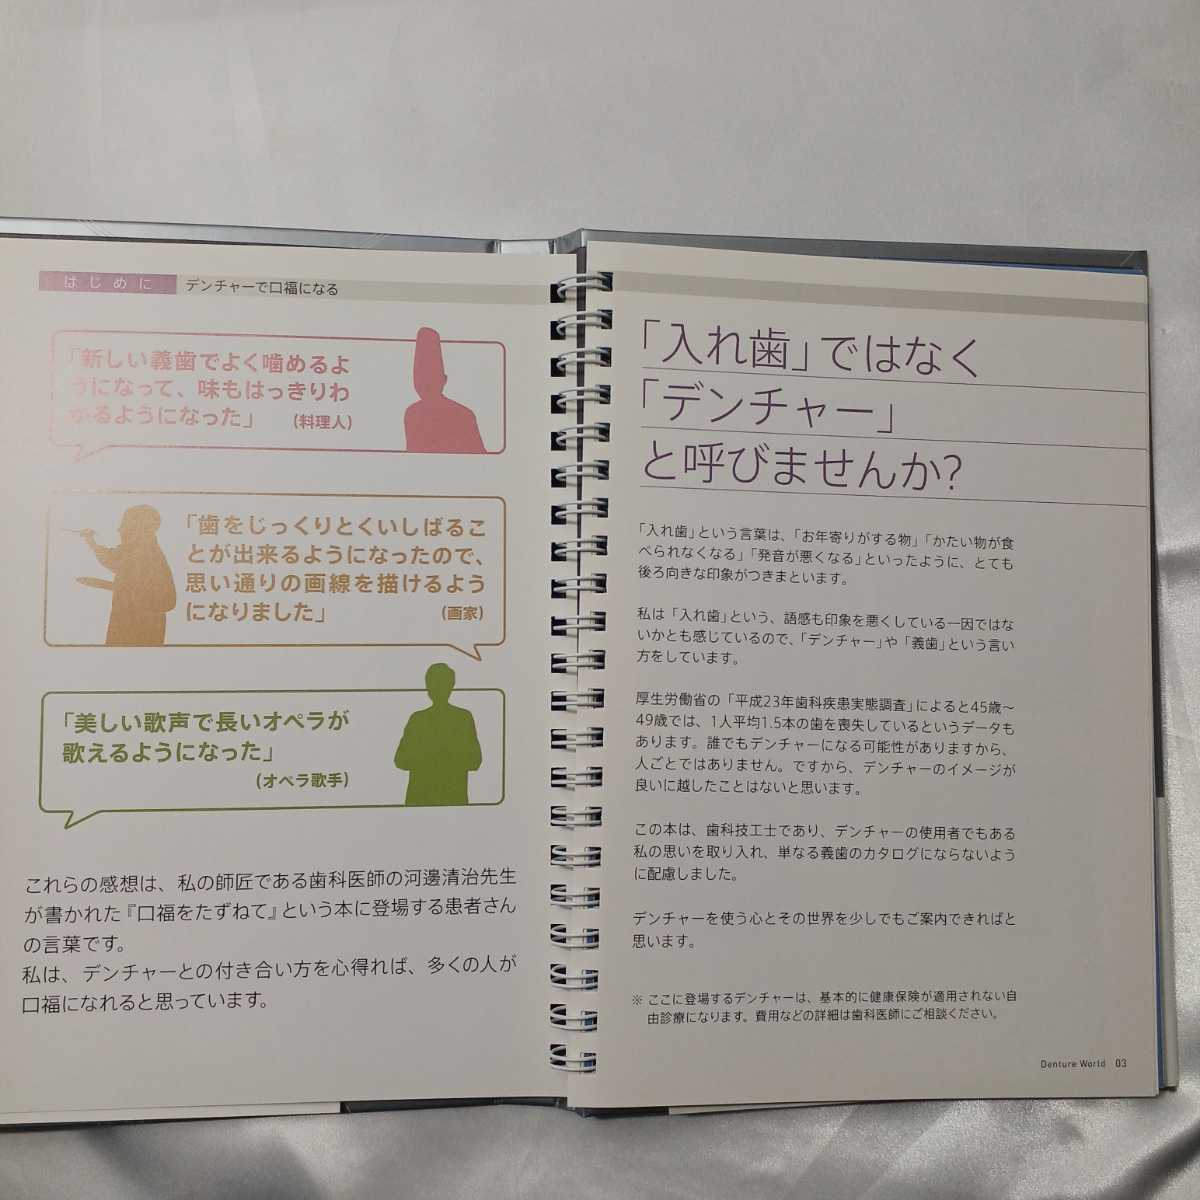 はじめに
デンチャーで口福になる
「新しい義歯でよく噛めるよ
うになって、味もはっきりわ
かるようになった」
(料理人)
「歯をじっくりとくいしばるこ
とが出来るようになったので、
思い通りの画線を描けるよう
になりました」
(画家)
「美しい歌声で長いオペラが
歌えるようになった」
(オペラ歌手)
これらの感想は、私の師匠である歯科医師の河邊清治先生
が書かれた『口福をたずねて』という本に登場する患者さん
の言葉です。
私は、デンチャーとの付き合い方を心得れば、多くの人が
口福になれると思っています。
「入れ歯」ではなく
「デンチャー」
と呼びませんか?
「入れ歯」という言葉は、「お年寄りがする物」「かたい物が食
べられなくなる」「発音が悪くなる」といったように、とても
後ろ向きな印象がつきまといます。
私は「入れ歯」という、語感も印象を悪くしている一因ではな
いかとも感じているので、「デンチャー」や「義歯」という言い
方をしています。
厚生労働省の「平成23年歯科疾患実態調査」によると45歳〜
49歳では、1人平均1.5本の歯を喪失しているというデータも
あります。誰でもデンチャーになる可能性がありますから、
人ごとではありません。ですから、デンチャーのイメージが
良いに越したことはないと思います。
この本は、歯科技工士であり、デンチャーの使用者でもある
私の思いを取り入れ、単なる義歯のカタログにならないよう
に配慮しました。
デンチャーを使う心とその世界を少しでもご案内できればと
思います。
※ ここに登場するデンチャーは、基本的に健康保険が適用されない自
由診療になります。費用などの詳細は歯科医師にご相談ください。
Denture World 03